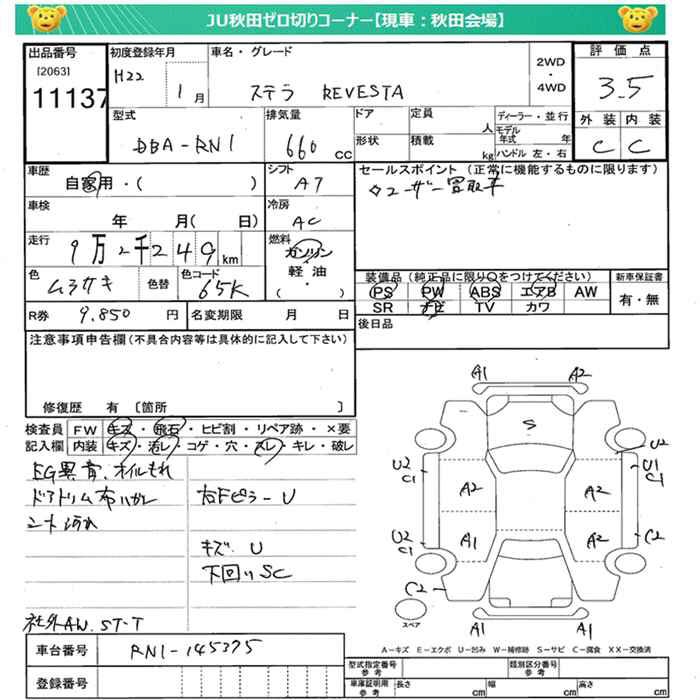 JU秋田ゼロ切りコーナー【現車：秋田会場】
出品番号
[2063]
11137
初度登録年月
H22
1月
車名・グレード
ステラ REVESTA
2WD
・
4WD
評価点
3.5
外装 内装
C C
型式
DBA-RN1
排気量
660 cc
ドア
形状
定員
人
積載
kg
ディーラー・並行
モデル年式 年
ハンドル 左・右
車歴
自家用・( )
シフト
A7
セールスポイント（正常に機能するものに限ります）
ユーザー買取車
車検
年 月( 日)
冷房
AC
走行
9万2千249km
燃料
ガソリン
・
軽油
・
( )
色
ムラサキ
色替
色コード
65K
装備品（純正品に限り○をつけてください）
PS PW ABS エアB AW
SR ナビ TV カワ
新車保証書
有・無
R券 9.850円
名変期限 月 日
後日品
注意事項申告欄（不具合内容等は具体的に記入して下さい）
修復歴 有〔箇所 〕
検査員記入欄
FW キズ・飛石・ヒビ割・リペア跡・×要
内装 キズ・汚レ・コゲ・穴・スレ・キレ・破レ
EG異音、オイルもれ
ドアトリム布ハガレ 右Fピラ-U
シート汚れ
キズ、U
下回りSC
社外AW、ST-T
A1 A2
S
U2
U2 C1 A2 A2 U1 C1
U2 C1 A1 A2 C2
C2
スペア
A1 A1
A－キズ E－エクボ U－凹み W－補修跡 S－サビ C－腐食 XX－交換済
車台番号 RN1-145375
登録番号
型式指定番号
参考
類別区分番号
参考
車庫証明用
参考
長さ cm 幅 cm 高さ cm